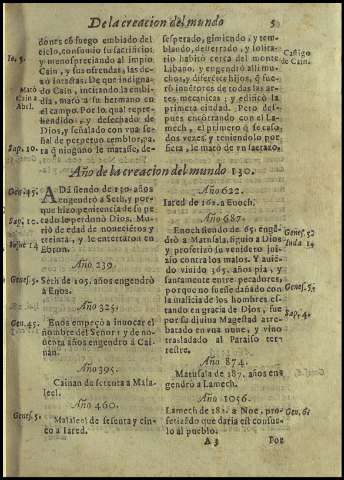 De la creacion del mundo
5
dones cō fuego embiado del
cielo, consumio su sacrificio
y menospreciando al impio
Cain, y sus ofrendas, las de-
xo intactas. De que indigna-
do Cain, incitando la embi-
dia, matò a su hermano en
el campo. Por lo qual repre-
hendido, y desechado de
Dios, y señalado con vna se-
ñal de perpetuo temblor, pa-
ra q̄ ninguno le matasse, de-
Matò
Cain a
Abel.
Sap. 10.
sesperado, gimiendo, y tem-
blando, desterrado, y solita-
rio habitò cerca del monte
Libano, y engendrò alli mu-
chos, y diferētes hijos, q̄ fue-
rō inuētores de todas las ar-
tes mecanicas; y edificò la
primera ciudad. Pero des-
pues encōtrando con el La-
mech, el primero q̄ se casò
dos vezes, y teniendolo por
fiera, le matò de vn saetazo.
Castigo
de Cain.
Año de la creacion del mundo 130.
Gen. 45.
ADā siendo de 130. años
engendrò a Seth, y por-
que hizo penitencia de su pe-
cado le perdonò Dios. Mu-
riò de edad de nouecietos y
treinta, y le enterraron en
Ebron.
Sap. 10.
Iosue 14
Año 239.
Genes. 5.
Seth de 105. años engendrò
a Enos.
Año 325.
Gen. 45.
Enos empeçò a inuocar el
nombre del Señor; y de no-
uenta años engendrò a Cai-
nan.
Año 395.
Cainan de setenta a Mala-
leel.
Año 460.
Genes. 5.
Malaleel de sesenta y cin-
co a Iared.
Año 622.
Iared de 162. a Enoch.
Año 687.
Enoch siendo de 65. engen-
drò a Matusala, siguio a Dios
y profetizò su venidero jui-
zio contra los malos. Y auiē-
do viuido 365. años pia, y
santamente entre pecadores,
porque no fuesse dañado con
la malicia de los hombres es-
tando en gracia de Dios, fue
por su diuina Magestad arre-
batado en vna nuue, y
trasladado al Paraiso ter-
restre.
Genes. 5.
Iuda 14
Genes. 5.
Sap. 4.
Año 874.
Matusala de 187. años en-
gendrò a Lamech.
Año 1056.
Lamech de 182. a Noe, pro-
fetizando que daria esse consue-
lo al pueblo.
Gen. 6.
A 3
Por